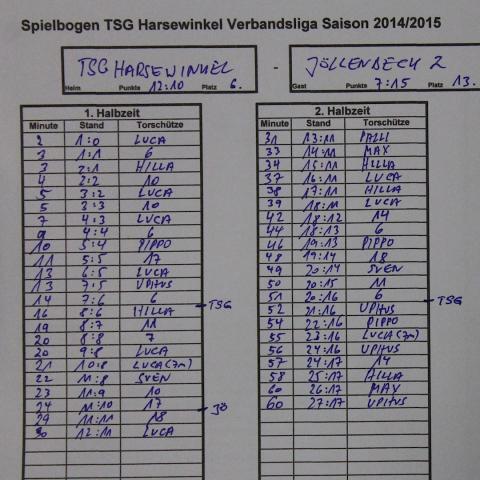 Spielbogen TSG Harsewinkel Verbandsliga Saison 2014/2015
TSG HARSEWINKEL - JÖLLENBECK 2
Heim Punkte 12:10 Platz 6. Gast Punkte 7:15 Platz 13.
1. Halbzeit
Minute Stand Torschütze
2 1:0 LUCA
3 1:1 6
3 2:1 HILLA
4 2:2 10
5 3:2 LUCA
5 3:3 10
7 4:3 LUCA
9 4:4 6
10 5:4 PIPPO
11 5:5 17
13 6:5 LUCA
13 7:5 UPHUS
14 7:6 6
TSG
16 8:6 HILLA
19 8:7 11
20 8:8 7
20 9:8 LUCA
21 10:8 LUCA (7m)
22 11:8 SVEN
23 11:9 10
24 11:10 17
JÖ
29 11:11 18
30 12:11 LUCA
2. Halbzeit
Minute Stand Torschütze
31 13:11 PALLI
33 14:11 MAX
34 15:11 HILLA
37 16:11 LUCA
38 17:11 HILLA
39 18:11 LUCA
42 18:12 14
44 18:13 6
46 19:13 PIPPO
48 19:14 18
49 20:14 SVEN
50 20:15 11
51 20:16 6
TSG
52 21:16 UPHUS
54 22:16 PIPPO
55 23:16 LUCA (7m)
56 24:16 UPHUS
57 24:17 14
58 25:17 HILLA
60 26:17 MAX
60 27:17 UPHUS